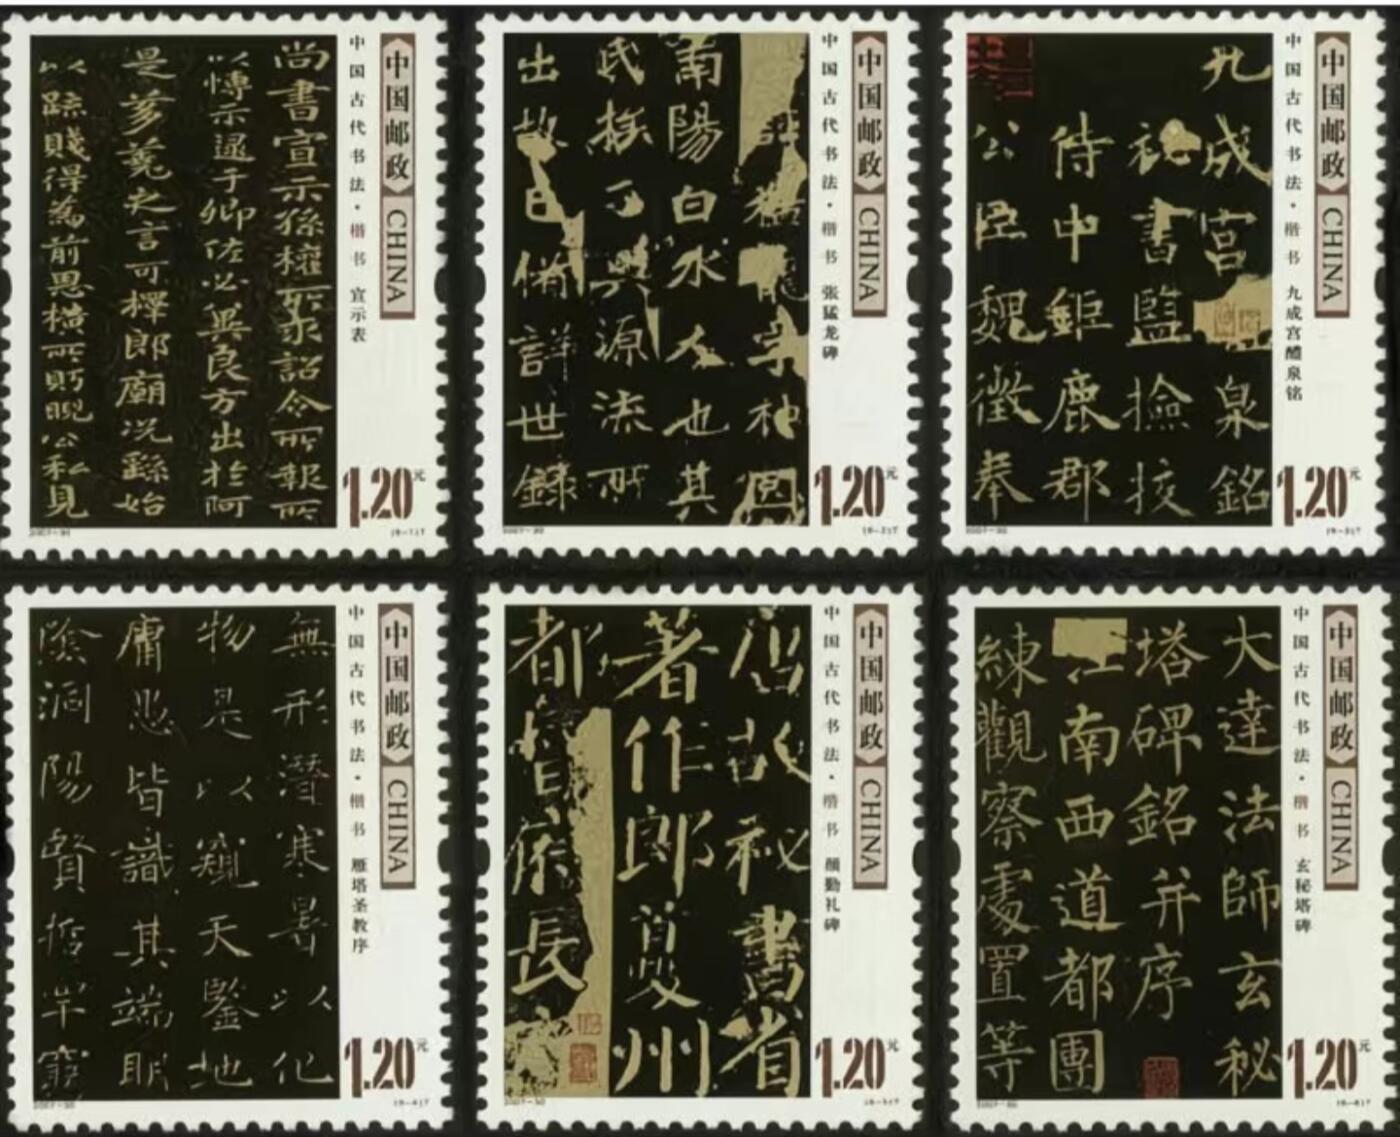 尚書宣示孫權所求詔令所報所
以博示逮于卿佐必異良方出於阿
是芻蕘之言可擇郎廟况繇始
以疏賤得為前恩橫所貺睨公私見
中国古代书法·楷书 宣示表
中国邮政 CHINA
1.20元
2007-30
(6-1)T
南陽白水人也其
氏族分興源流所
出故已備詳世錄
中国古代书法·楷书 张猛龙碑
中国邮政 CHINA
1.20元
2007-30
(6-2)T
九成宫 泉銘
秘書監檢挍
侍中鉅鹿郡
公臣魏徵奉
中国古代书法·楷书 九成宫醴泉铭
中国邮政 CHINA
1.20元
2007-30
(6-3)T
無形潛寒暑以化
物是以窺天鑒地
庸愚皆識其端明
陰洞陽賢哲罕窮
中国古代书法·楷书 雁塔圣教序
中国邮政 CHINA
1.20元
2007-30
(6-4)T
君故秘書省
著作郎夔州
都督府長
中国古代书法·楷书 颜勤礼碑
中国邮政 CHINA
1.20元
2007-30
(6-5)T
大達法師玄秘
塔碑銘并序
江南西道都團
練觀察處置等
中国古代书法·楷书 玄秘塔碑
中国邮政 CHINA
1.20元
2007-30
(6-6)T